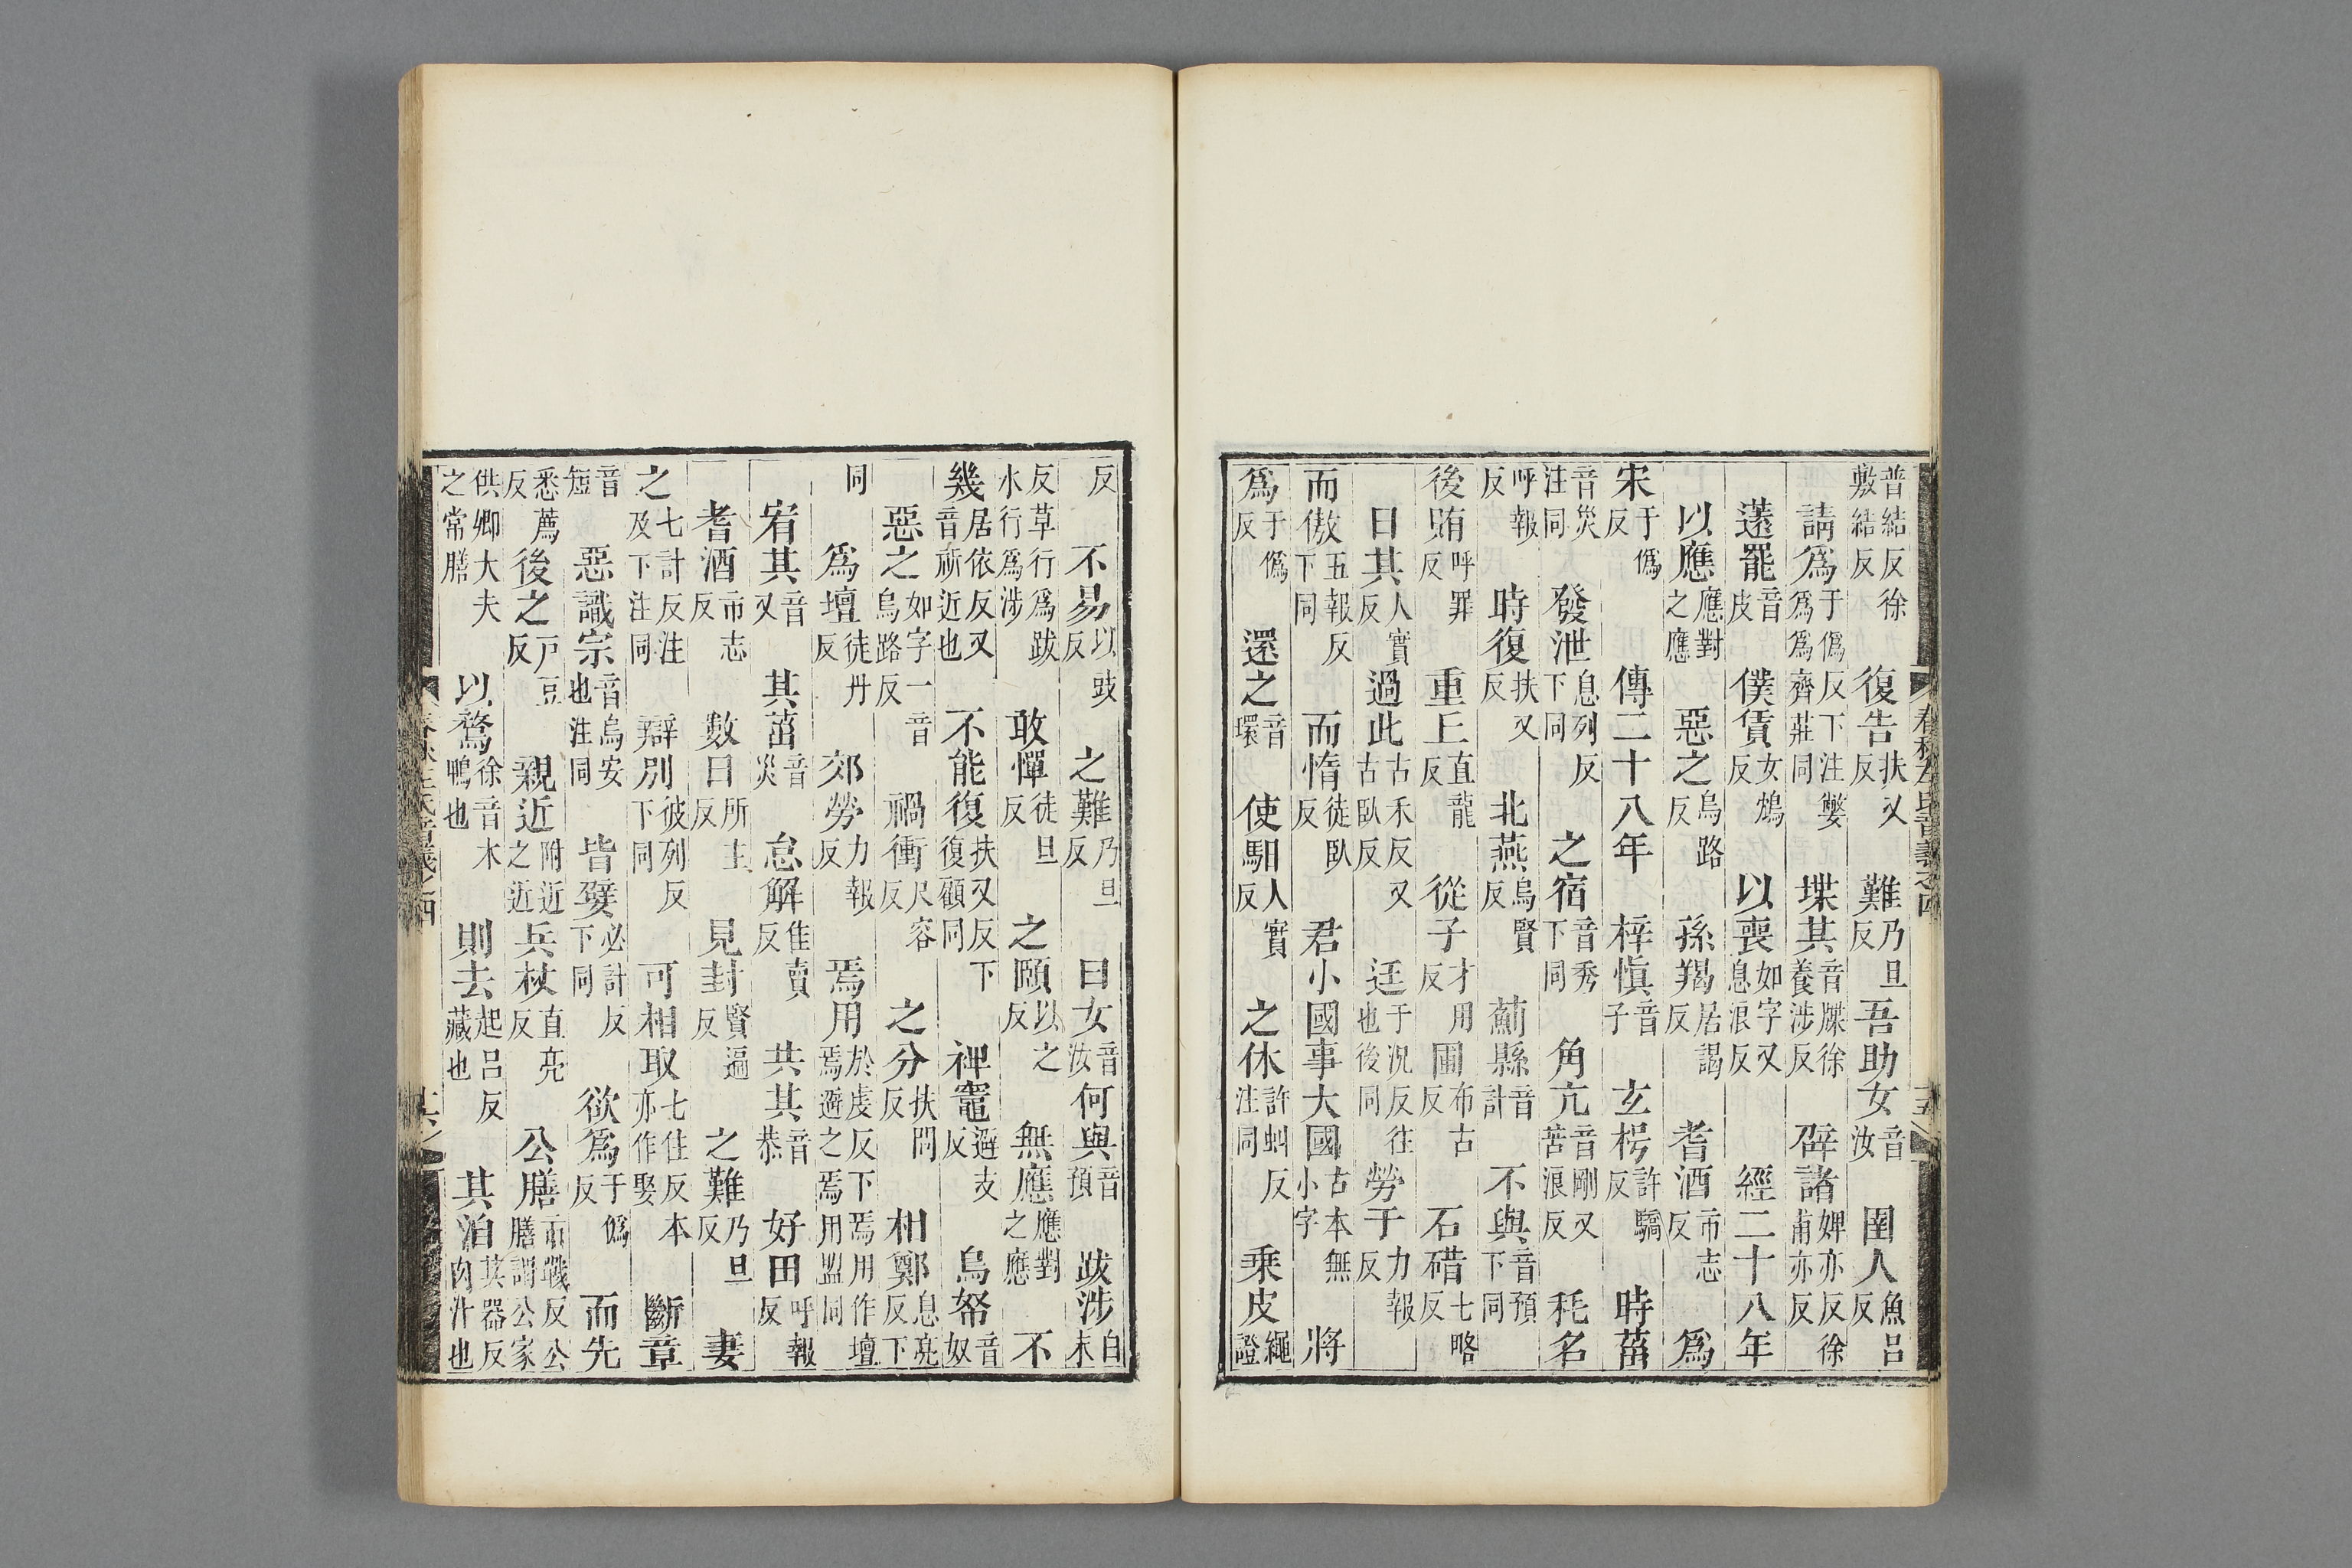 普結反徐敷結反 復告扶又反 難乃旦反 吾助女音汝 圉人魚呂反
請爲于僞反下注嬖爲爲齊莊同 堞其音牒徐養涉反 辟諸婢亦反徐甫亦反
薳罷音皮 僕賃女鴆反 以喪如字又息浪反 經二十八年
以應應對之應 惡之烏路反 孫羯居謁反 耆酒市志反 爲
宋于僞反 傳二十八年 梓慎音子 玄枵許驕反 時菑
音災注同 發泄息列反下同 之宿音秀下同 角亢音剛又苦浪反 秏名
呼報反 時復扶又反 北燕烏賢反 薊縣音計 不與音預下同
後賄呼罪反 重丘直龍反 從子才用反 圃布古反 石碏七略反
日其人實反 過此古禾反又古臥反 迋于況反往也後同 勞于力報反
而傲五報反下同 而惰徒臥反 君小國事大國古本無小字 將
爲于僞反 還之音環 使馹人實反 之休許虯反注同 乗皮繩證
春秋左氏音義之四
反 不易以豉反 之難乃旦反 曰女音汝 何與音預 跋涉白末
反草行爲跋水行爲涉 敢憚徒旦反 之頤以之反 無應應對之應 不
幾居依反又音祈近也 不能復扶又反下復顧同 裨竈避支反 烏帑音奴
惡之如字一音烏路反 禍衝尺容反 之分扶問反 相鄭息亮反下
同 爲壇徒丹反 郊勞力報反 焉用於虔反下焉用作壇焉避之焉用盟同
宥其音又 其菑音災 怠解佳賣反 共其音恭 好田呼報反
耆酒市志反 數日所主反 見封賢遍反 之難乃旦反 妻
之七計反注及下注同 辯別彼列反下同 可相取七住反本亦作娶 斷章
音短 惡識宗音烏安也注同 皆嬖必計反下同 欲爲于僞反 而先
悉薦反 後之戸豆反 親近附近之近 兵杖直亮反 公膳市戰反公膳謂公家
供卿大夫之常膳 以鶩徐音木鴨也 則去起呂反藏也 其洎其器反肉汁也